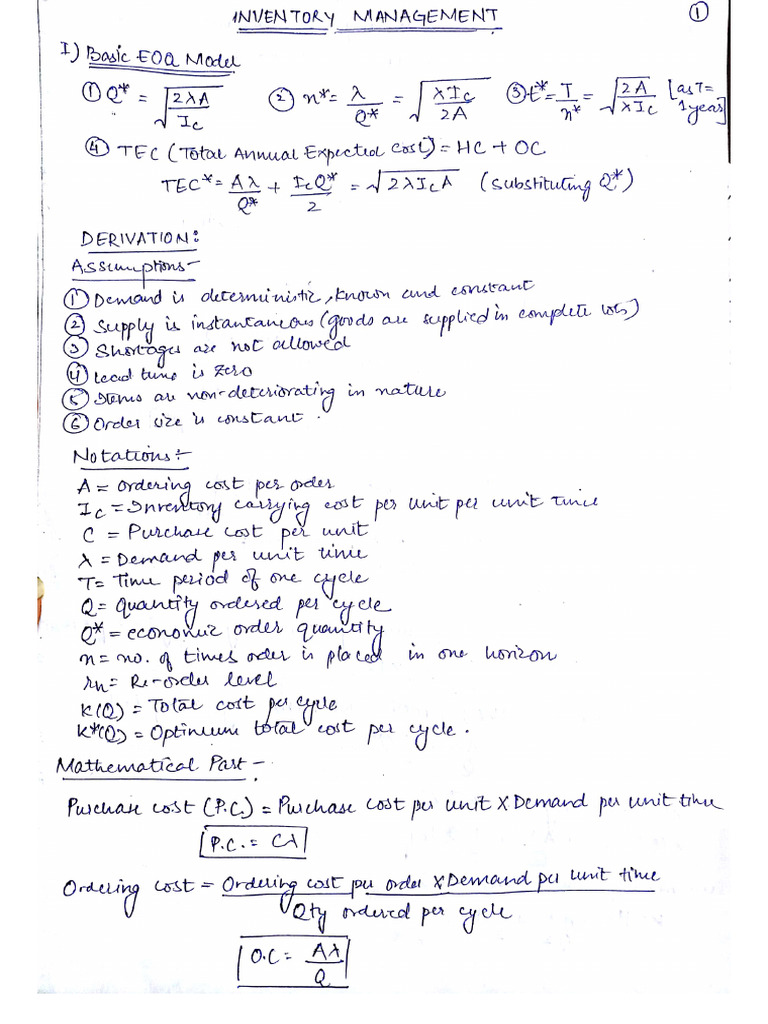 INVENTORY MANAGEMENT ①
I) Basic EOQ Model
① Q* = √(2λA / Ic) ② n* = λ/Q* = √(λIc / 2A) ③ t* = T/n* = √(2A / λIc) [as T = 1 year]
④ TEC (Total Annual Expected Cost) = HC + OC
TEC* = Aλ/Q* + IcQ*/2 = √(2λIcA) (Substituting Q*)
DERIVATION:
Assumptions:-
① Demand is deterministic, known and constant
② Supply is instantaneous (goods are supplied in complete lots)
③ Shortages are not allowed
④ Lead time is zero
⑤ Items are non-deteriorating in nature
⑥ Order size is constant.
Notations:-
A = Ordering cost per order
Ic = Inventory carrying cost per unit per unit time
C = Purchase cost per unit
λ = Demand per unit time
T = Time period of one cycle
Q = quantity ordered per cycle
Q* = economic order quantity
n = no. of times order is placed in one horizon
rn = Re-order level
K(Q) = Total cost per cycle
K*(Q) = Optimum total cost per cycle.
Mathematical Part -
Purchase cost (P.C.) = Purchase cost per unit X Demand per unit time
P.C. = Cλ
Ordering cost = Ordering cost per order X Demand per unit time
Qty ordered per cycle
O.C = Aλ/Q